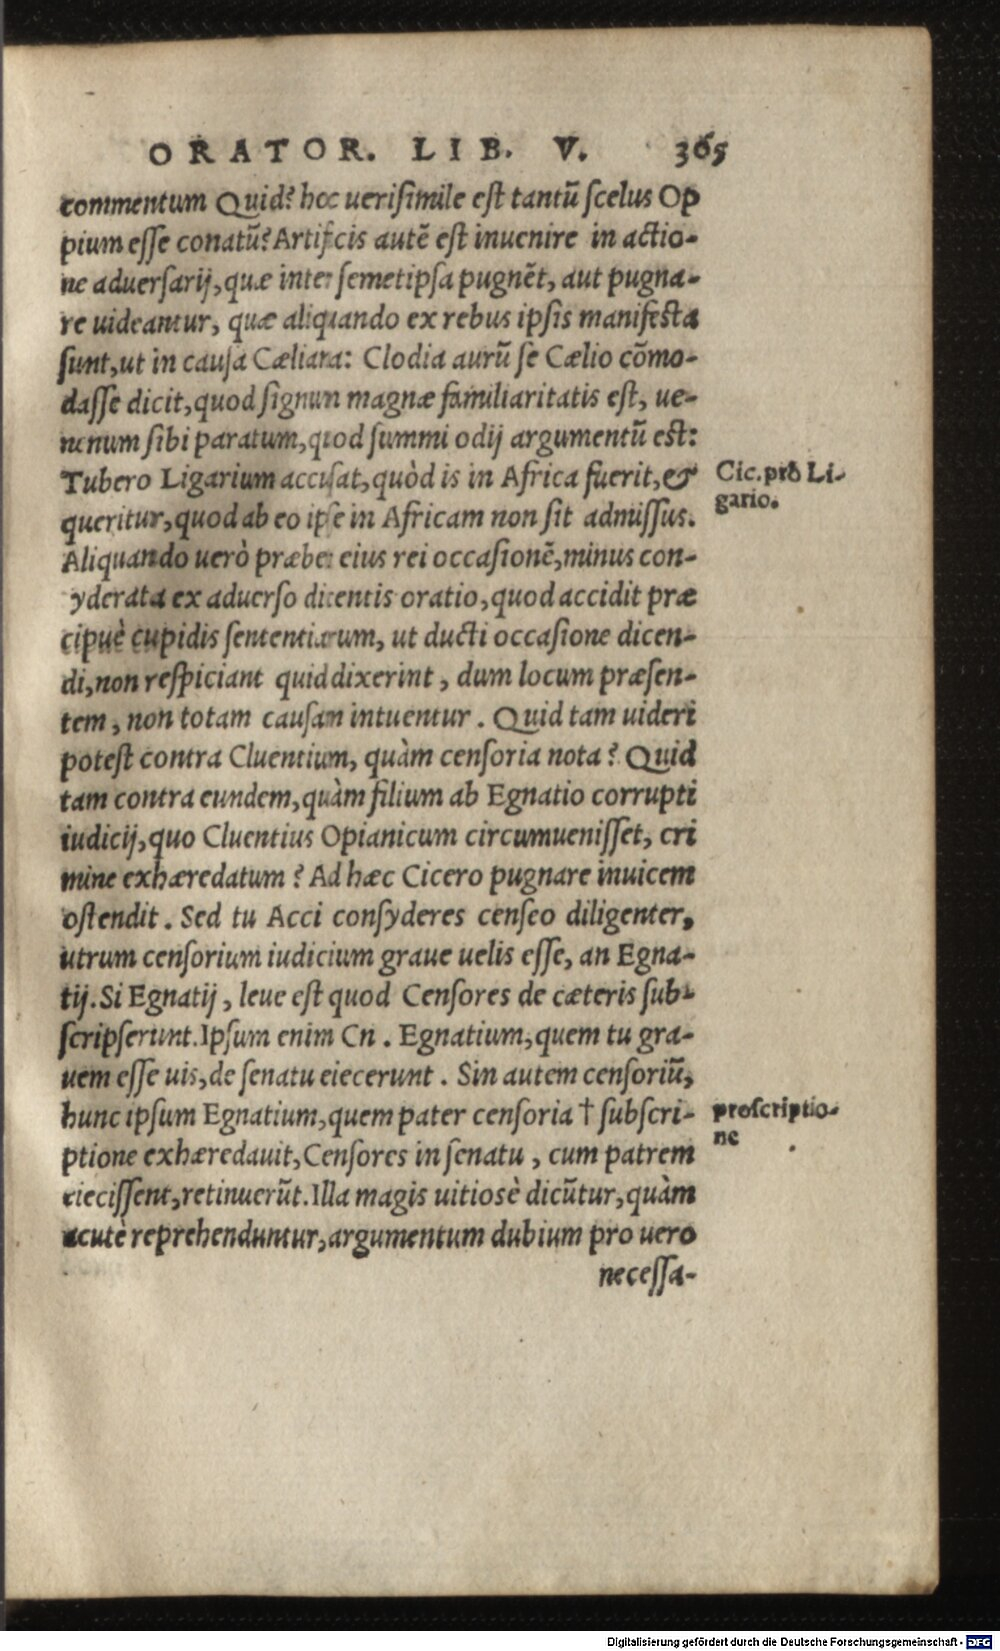 ORATOR. LIB. V. 365
commentum Quid? hoc uerisimile est tantū scelus Op
pium esse conatū? Artificis autē est inuenire in actio-
ne aduersarij, quæ inter semetipsa pugnēt, aut pugna-
re uideantur, quæ aliquando ex rebus ipsis manifesta
sunt, ut in causa Cæliana: Clodia aurū se Cælio cōmo-
dasse dicit, quod signum magnæ familiaritatis est, ue-
nenum sibi paratum, quod summi odij argumentū est:
Tubero Ligarium accusat, quòd is in Africa fuerit, &
Cic. pro Li-
gario.
queritur, quod ab eo ipse in Africam non sit admissus.
Aliquando uerò præbet eius rei occasionē, minus con-
syderata ex aduerso dicentis oratio, quod accidit præ
cipuè cupidis sententiarum, ut ducti occasione dicen-
di, non respiciant quid dixerint, dum locum præsen-
tem, non totam causam intuentur. Quid tam uideri
potest contra Cluentium, quàm censoria nota? Quid
tam contra eundem, quàm filium ab Egnatio corrupti
iudicij, quo Cluentius Opianicum circumuenisset, cri
mine exhæredatum? Ad hæc Cicero pugnare inuicem
ostendit. Sed tu Acci consyderes censeo diligenter,
utrum censorium iudicium graue uelis esse, an Egna-
tij. Si Egnatij, leue est quod Censores de cæteris sub-
scripserunt. Ipsum enim Cn. Egnatium, quem tu gra-
uem esse uis, de senatu eiecerunt. Sin autem censoriū,
hunc ipsum Egnatium, quem pater censoria † subscri-
proscriptio-
ne
ptione exhæredauit, Censores in senatu, cum patrem
eiecissent, retinuerūt. Illa magis uitiosè dicūtur, quàm
acutè reprehenduntur, argumentum dubium pro uero
necessa-
Digitalisierung gefördert durch die Deutsche Forschungsgemeinschaft - DFG